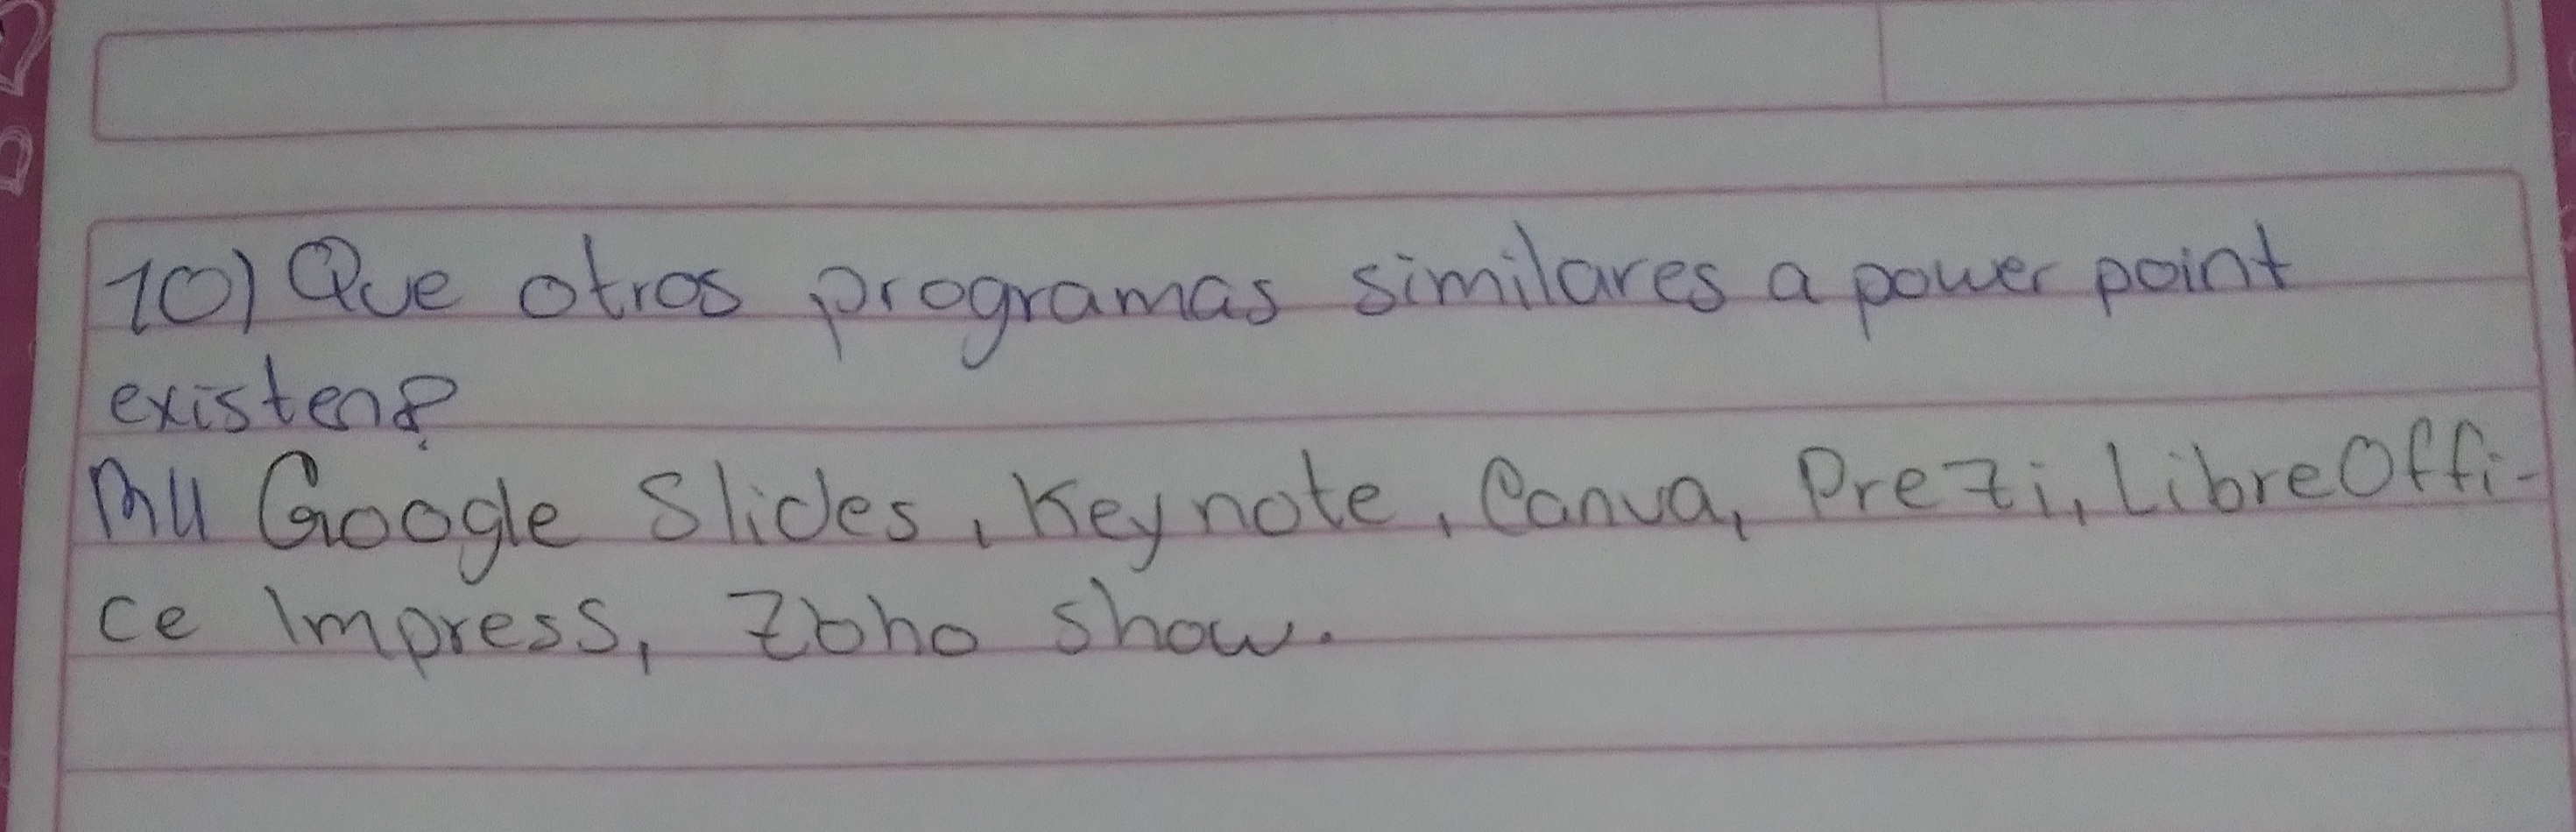 10) Que otros programas similares a power point
existen?
Google Slides, Keynote, Canva, Prezi, LibreOffi-
ce Impress, Zoho show.